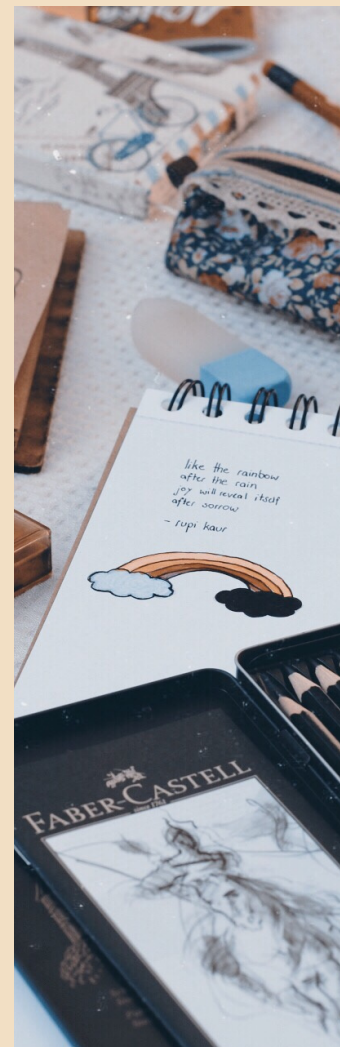 like the rainbow
after the rain
joy will reveal itself
after sorrow
- rupi kaur
FABER-CASTELL
since 1761